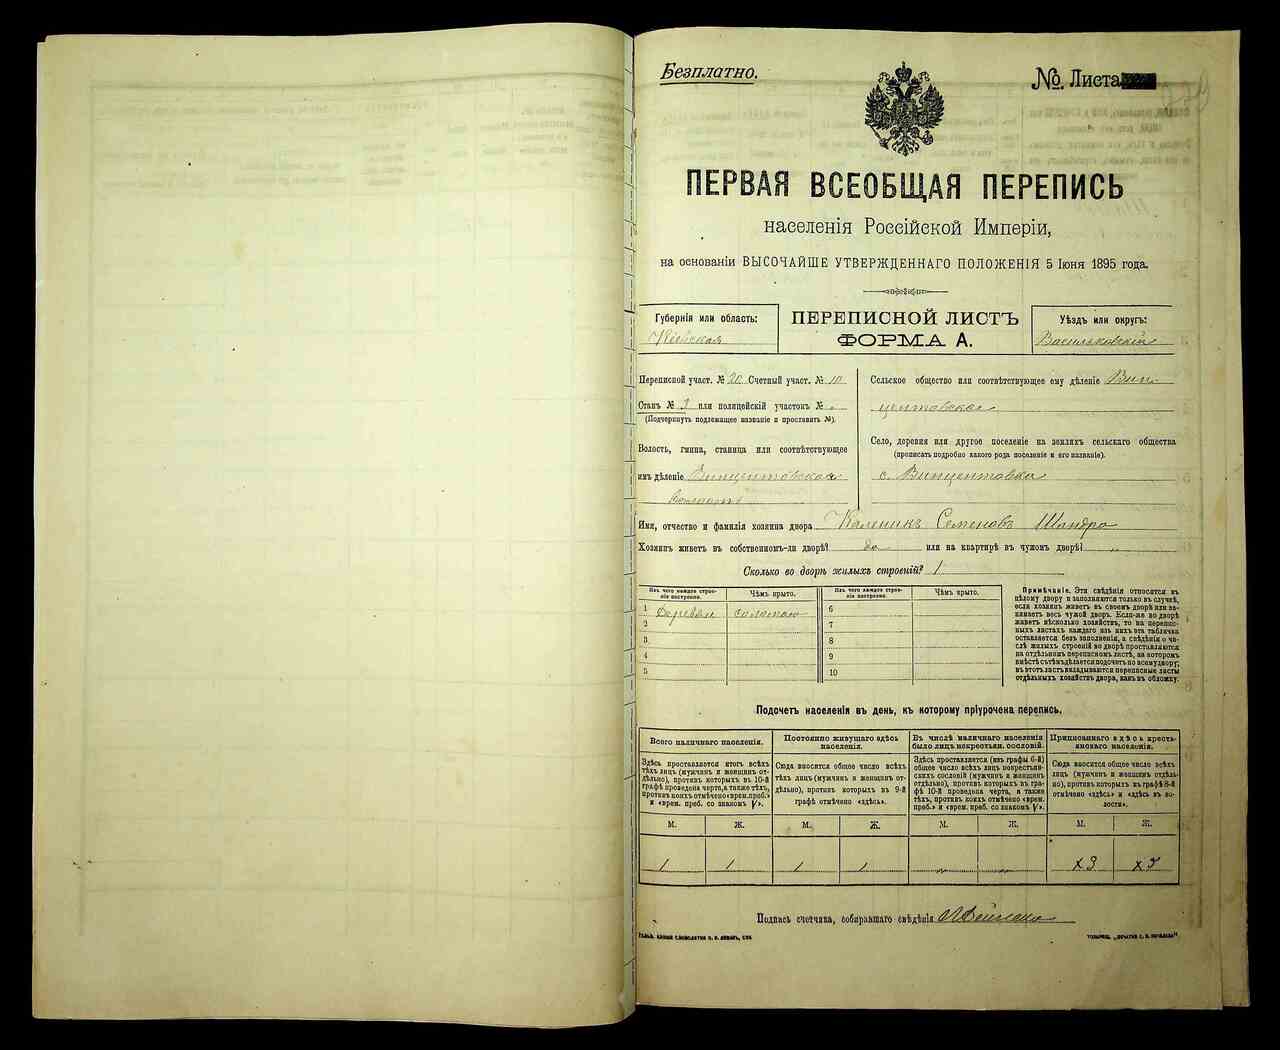 Безплатно.
№ Листа
ПЕРВАЯ ВСЕОБЩАЯ ПЕРЕПИСЬ
населенія Россійской Имперіи,
на основаніи ВЫСОЧАЙШЕ УТВЕРЖДЕННАГО ПОЛОЖЕНІЯ 5 Іюня 1895 года.
Губернія или область:
Кіевская
ПЕРЕПИСНОЙ ЛИСТЪ
ФОРМА А.
Уѣздъ или округъ:
Васильковскій
Переписной участ. № 20 Счетный участ. № 10
Станъ № 3 или полицейскій участокъ №
(Подчеркнуть подлежащее названіе и проставить №).
Волость, гмина, станица или соотвѣтствующее
имъ дѣленіе Винцентовская
волость
Сельское общество или соотвѣтствующее ему дѣленіе Вин
центовское
Село, деревня или другое поселеніе на земляхъ сельскаго общества
(прописать подробно какого рода поселеніе и его названіе).
с. Винцентовка
Имя, отчество и фамилія хозяина двора Каленикъ Семеновъ Шандра
Хозяинъ живетъ въ собственномъ-ли дворѣ? да или на квартирѣ въ чужомъ дворѣ? „
Сколько во дворѣ жилыхъ строеній? 1
Изъ чего каждое строеніе построено.
Чѣмъ крыто.
Изъ чего каждое строеніе построено.
Чѣмъ крыто.
1 Дерева соломою
2
3
4
5
6
7
8
9
10
Примѣчаніе. Эти свѣдѣнія относятся къ
цѣлому двору и заполняются только въ случаѣ,
если хозяинъ живетъ въ своемъ дворѣ или занимаетъ
весь чужой дворъ. Если-же во дворѣ
живетъ нѣсколько хозяйствъ, то на переписныхъ
листахъ каждаго изъ нихъ эта табличка
оставляется безъ заполненія, а свѣдѣнія о числѣ
жилыхъ строеній во дворѣ проставляются
на отдѣльномъ переписномъ листѣ, на которомъ
вмѣстѣ съ тѣмъ дѣлается подсчетъ по всему двору;
въ этотъ листъ вкладываются переписные листы
отдѣльныхъ хозяйствъ двора, какъ въ обложку.
Подсчетъ населенія въ день, къ которому пріурочена перепись.
Всего наличнаго населенія.
Здѣсь проставляется итогъ всѣхъ
тѣхъ лицъ (мужчинъ и женщинъ отдѣльно),
противъ которыхъ въ 10-й
графѣ проведена черта, а также тѣхъ,
противъ коихъ отмѣчено «врем. преб.»
и «врем. преб. со знакомъ V».
Постоянно живущаго здѣсь
населенія.
Сюда вносится общее число всѣхъ
тѣхъ лицъ (мужчинъ и женщинъ отдѣльно),
противъ которыхъ въ 9-й
графѣ отмѣчено «здѣсь».
Въ числѣ наличнаго населенія
было лицъ некрестьян. сословій.
Здѣсь проставляется (изъ графы 6-й)
общее число всѣхъ лицъ некрестьянскихъ
сословій (мужчинъ и женщинъ
отдѣльно), противъ которыхъ въ графѣ
10-й проведена черта, а также
тѣхъ, противъ коихъ отмѣчено «врем.
преб.» и «врем. преб. со знакомъ V».
Приписаннаго здѣсь крестьянскаго
населенія.
Сюда вносится общее число всѣхъ
лицъ (мужчинъ и женщинъ отдѣльно),
противъ которыхъ въ графѣ 8-й
отмѣчено «здѣсь» и «здѣсь въ волости».
М. Ж. М. Ж. М. Ж. М. Ж.
1 1 1 1 „ „ х3 х3
Подпись счетчика, собиравшаго свѣдѣнія